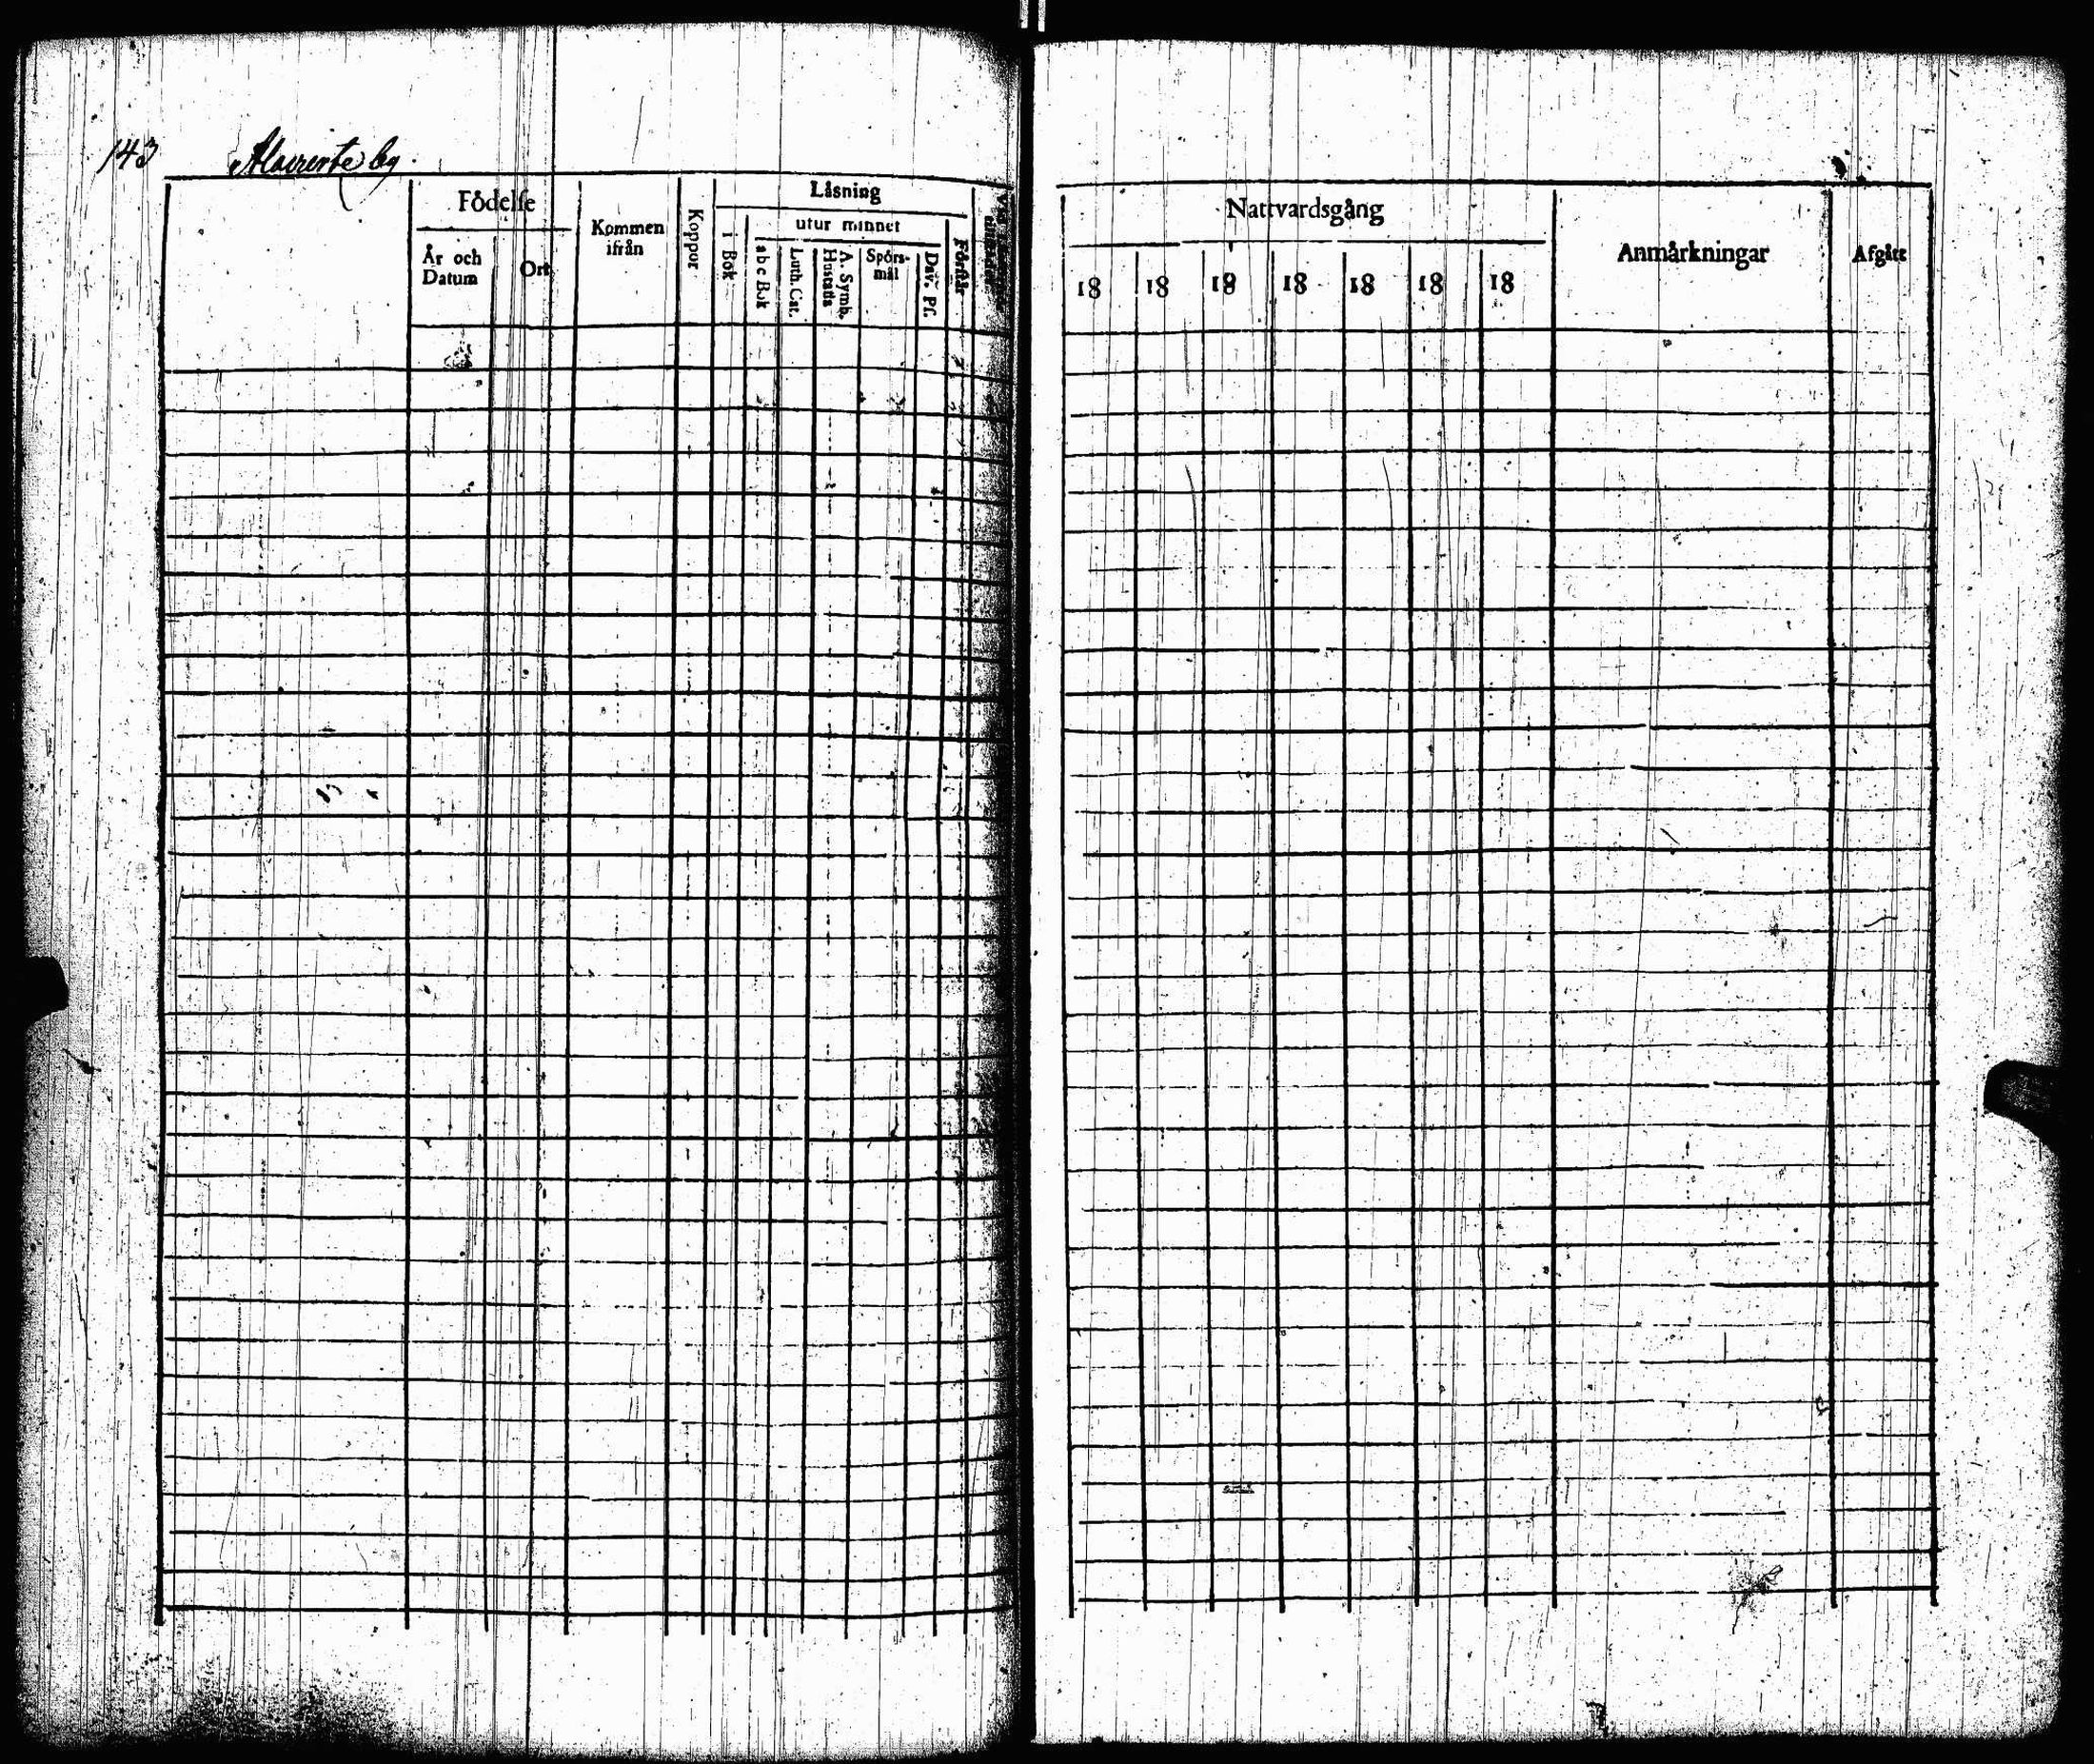 143 Alavirte by.
Födelse
År och Datum
Ort
Kommen ifrån
Koppor
Låsning
i Bok
utur minnet
abc Bok
Luth. Cat.
A. Symb. Hustafla
Spörs-mål
Dav. Ps.
Förstår
Nattvardsgång
18 18 18 18 18 18 18
Anmärkningar
Afgått